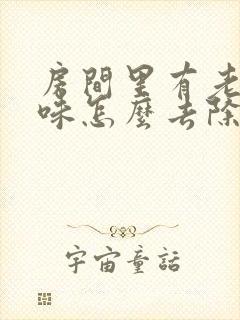 房間里有老
味怎麼去除
宇宙童話